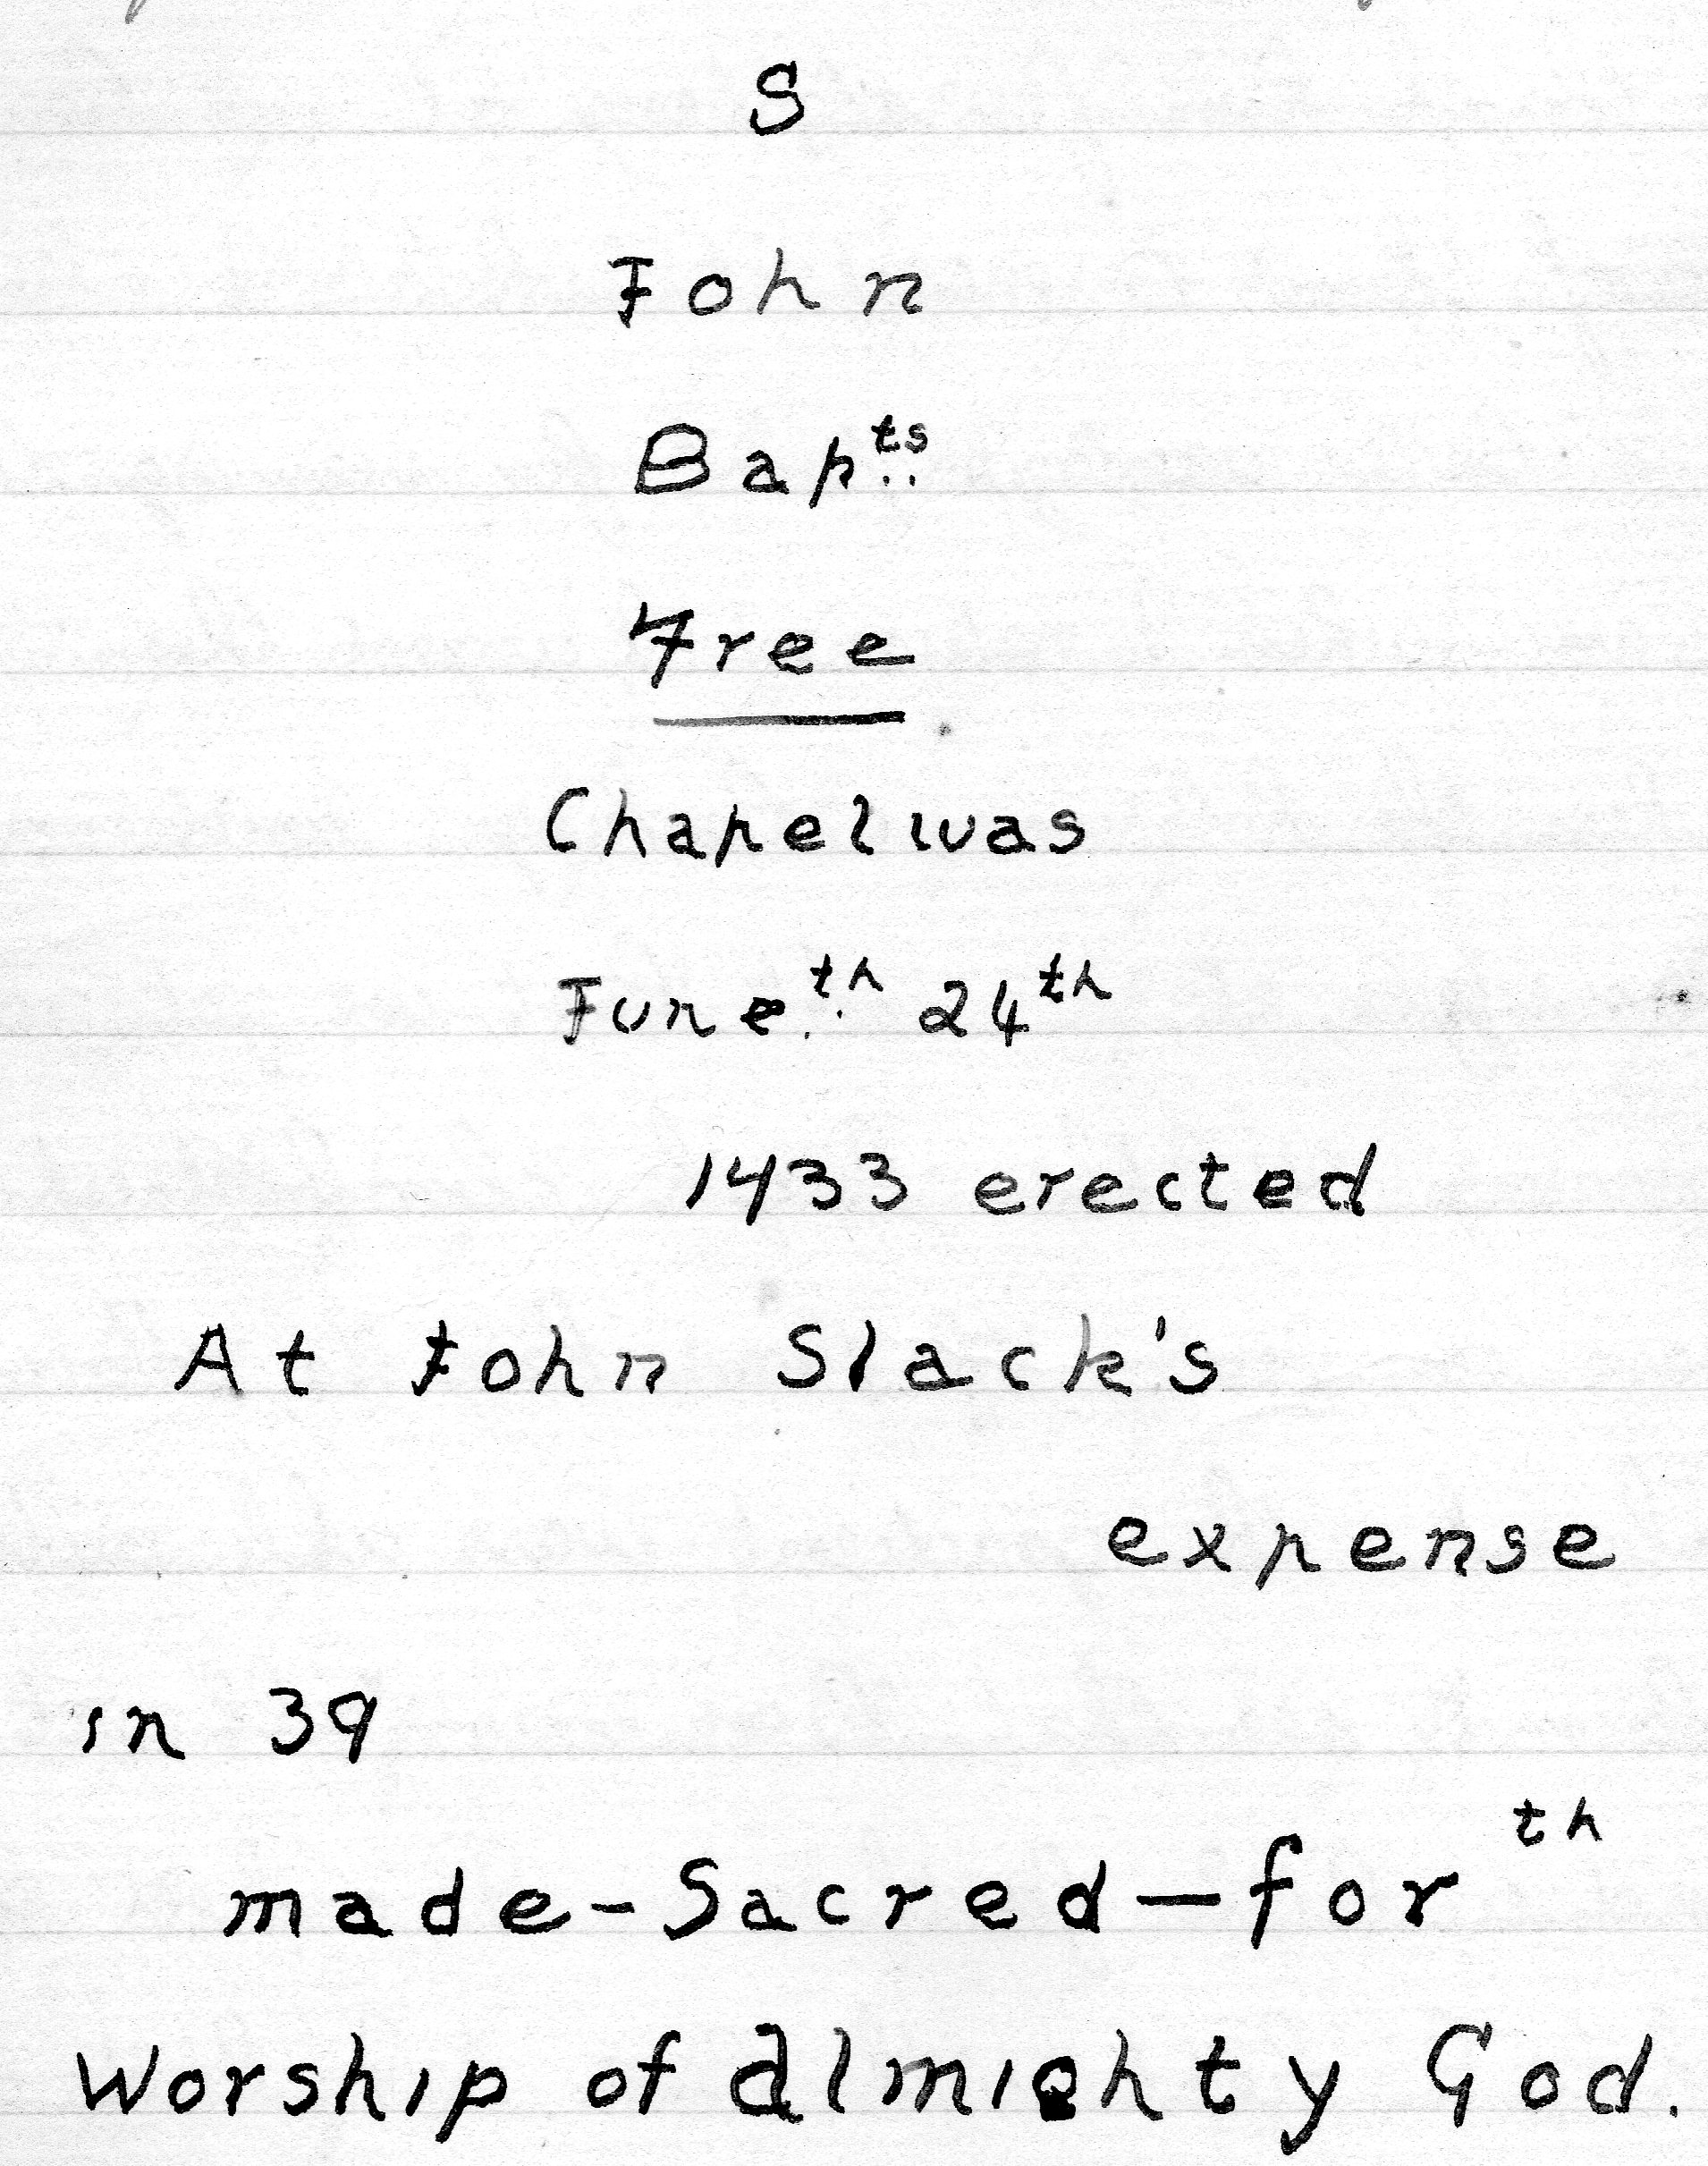 S
John
Bap^ts..
Free
Chapel was
June.^th. 24^th
1433 erected
At John Slack's
expense
in 39
made-Sacred—for ^th
Worship of almighty God.